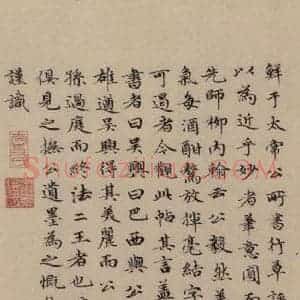 鮮于太常公所書行草
以為近乎妙者筆意圓
先師柳內翰云公毅然
氣每酒酣驁放揮毫結字
可過者今觀此帖其言蓋
書者曰吳興曰巴西與公
雄適吳興得其美麗而公
孫過庭而終法二王者也
俱見之撫公遺墨為之慨
謹識